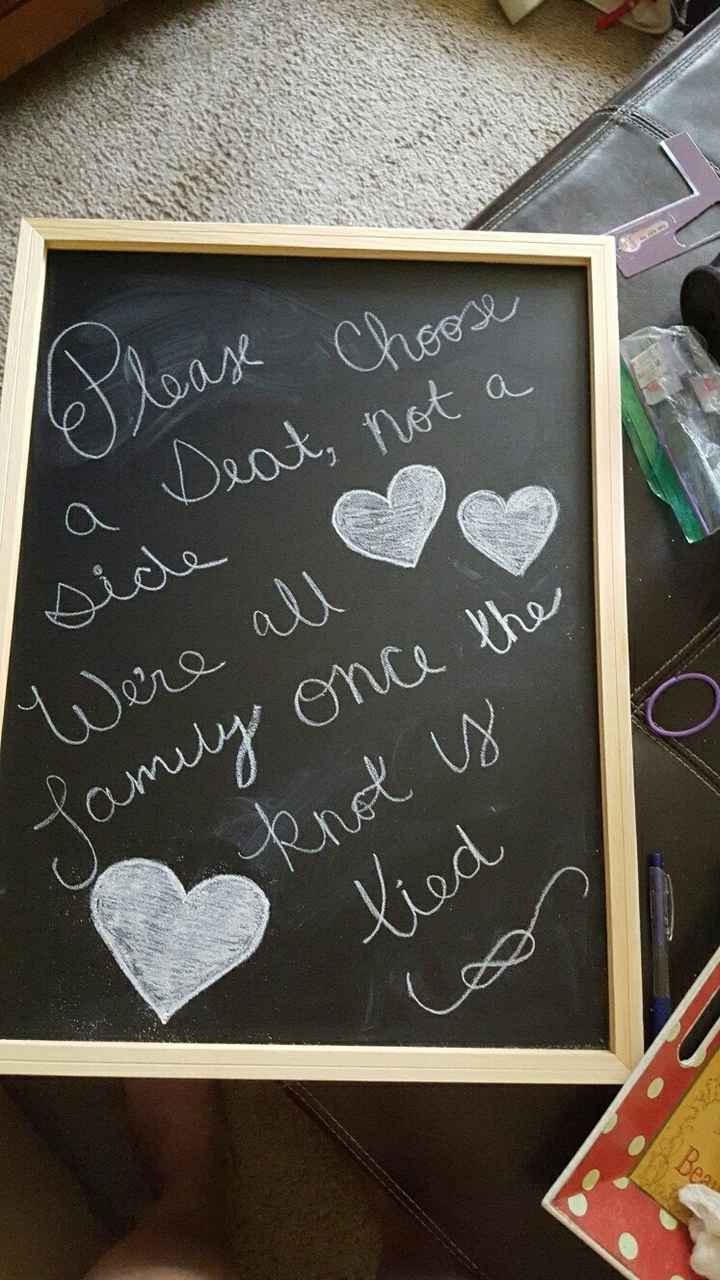 Please Choose
a Seat, not a
side
We're all
family once the
knot is
tied
Bea